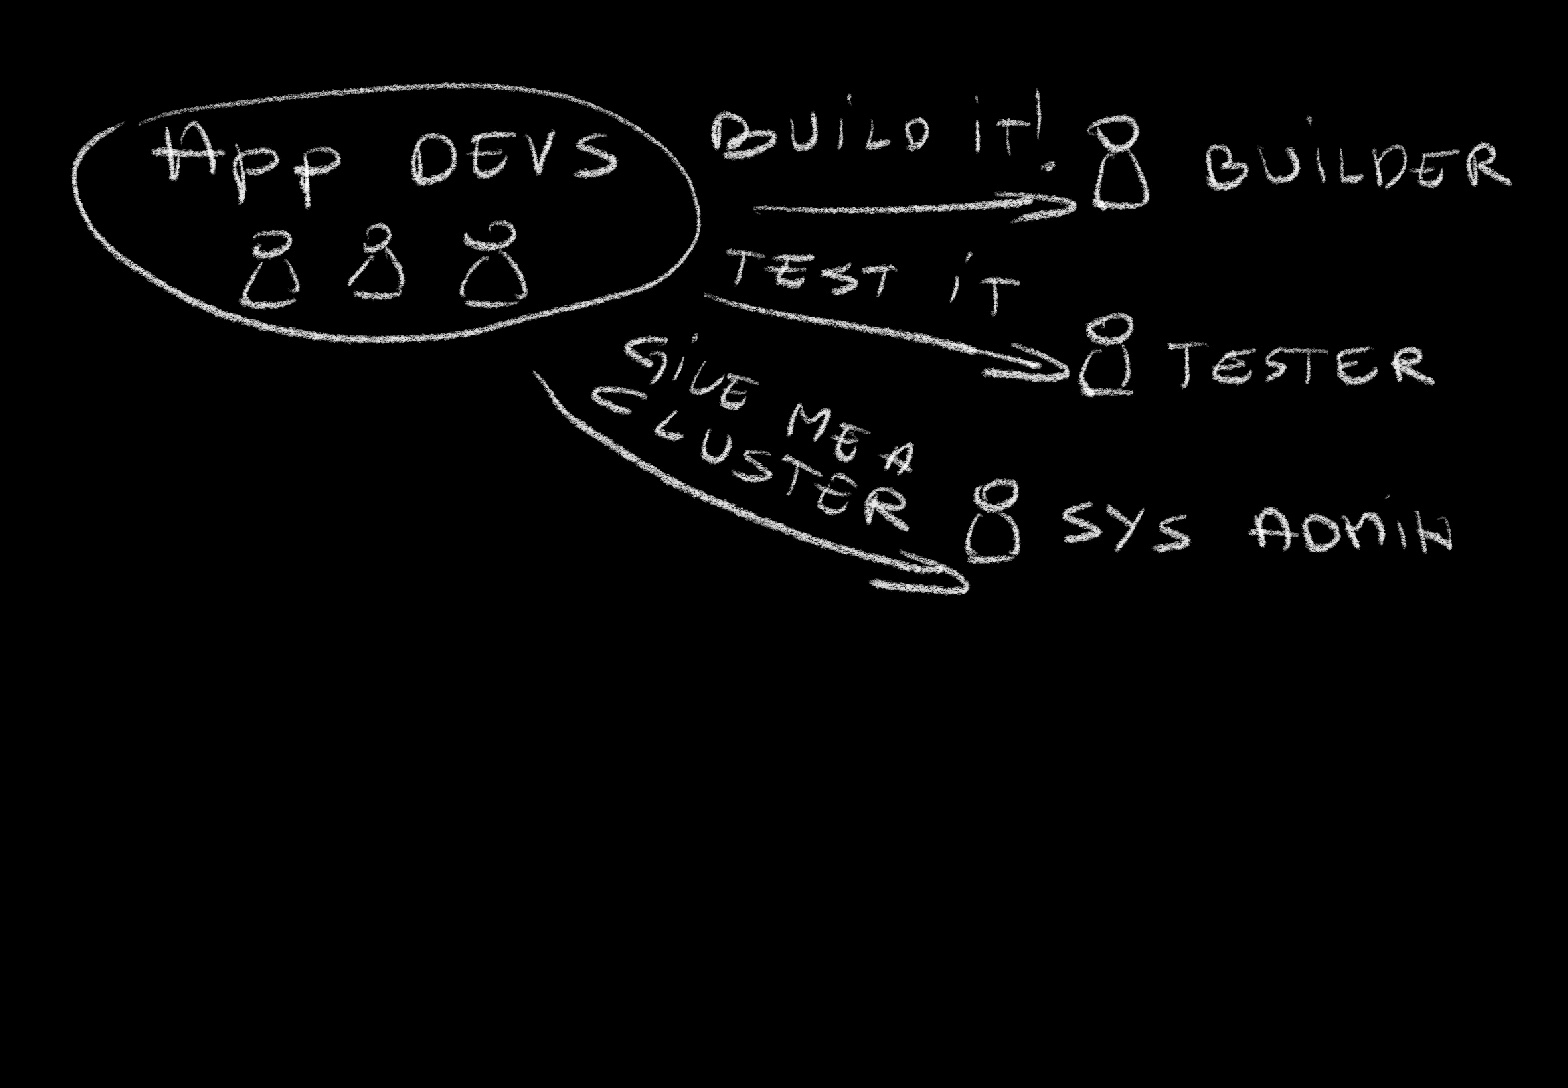 App DEVS
BUiLD iT!
BUiLDER
TEST iT
TESTER
GiVE ME A
CLUSTER
SYS ADMiN